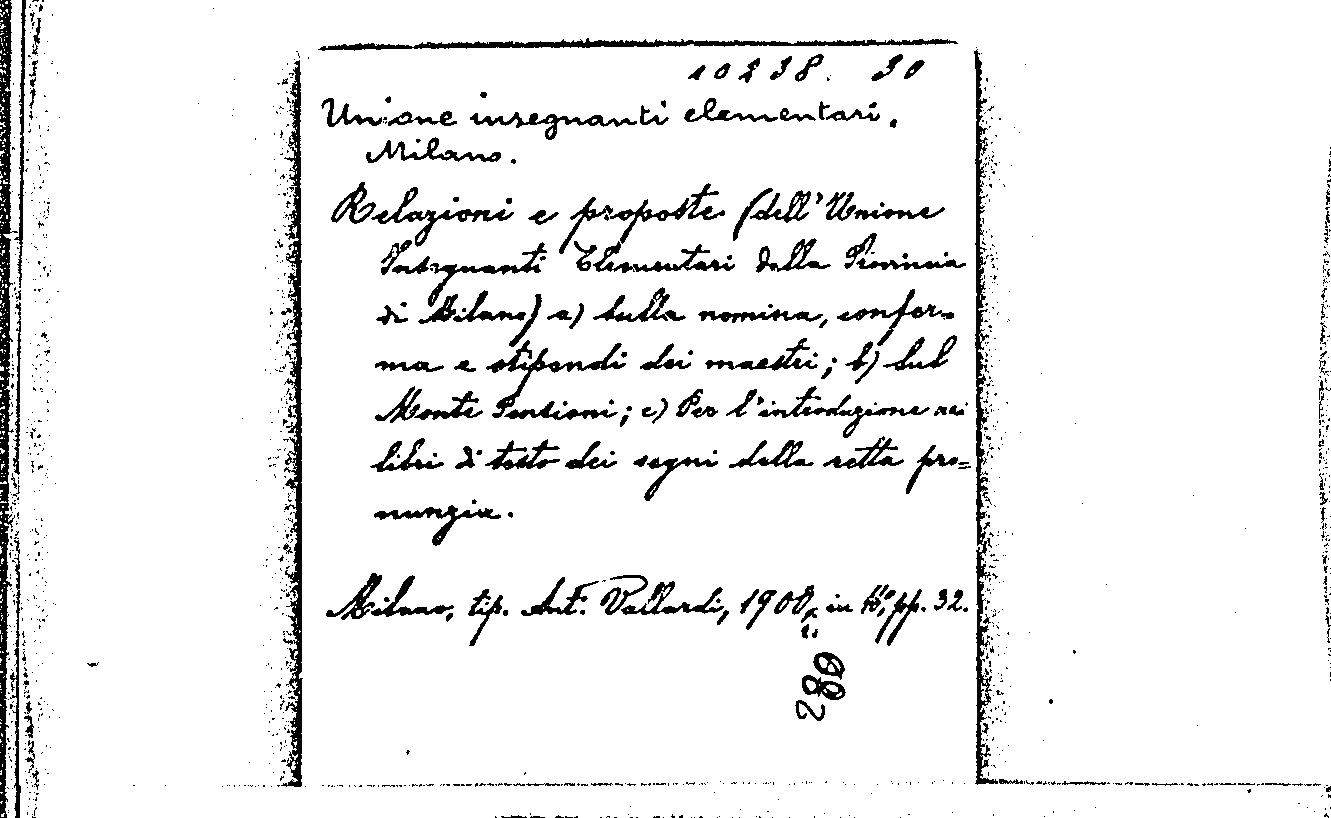 10238. 30
Unione insegnanti elementari.
Milano.
Relazioni e proposte (dell'Unione
Insegnanti Elementari della Provincia
di Milano) a) sulla nomina, confer=
ma e stipendi dei maestri; b) sul
Monte Pensioni; c) Per l'introduzione nei
libri di testo dei segni della retta pro=
nunzia.
Milano, tip. Ant. Vallardi, 1900, in pp. 32.
280